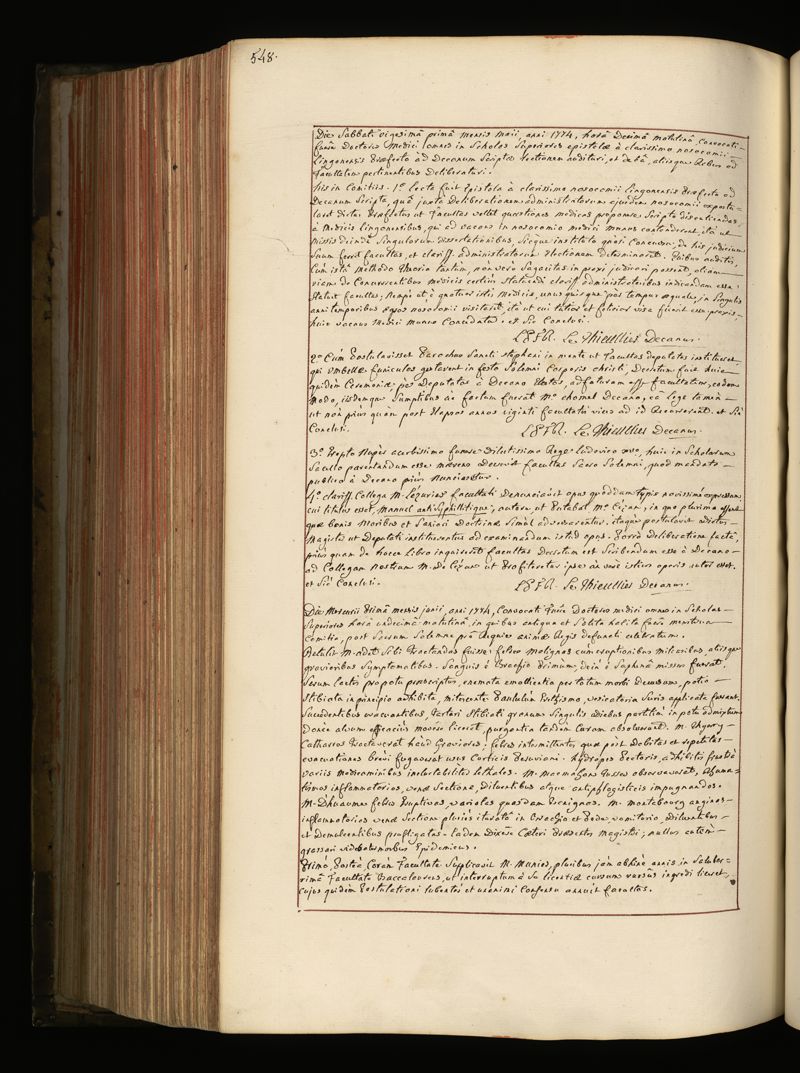 548.
Die Sabbati vigesimâ primâ mensis maii, anni 1774, horâ decimâ matutinâ, convocati
fuêre Doctores Medici omnes in Scholas Superiores epistolæ à clarissimo nosocomii
Lingonensis Præfecto ad Decanum Scriptæ lectionem audituri, et de eâ, aliisque Rebus ad
facultatem pertinentibus Deliberaturi.
His in Comitiis. 1° lecta fuit Epistola à clarissimo nosocomii Lingonensis Præfecto ad
Decanum Scripta, quâ juxta Deliberationem administratorum ejusdem nosocomii expostu=
laret dictus Præfectus ut Facultas vellet quæstiones medicas proponere Scripto discutiendas
à Medicis Lingonensibus, qui ad vacans in nosocomio medici munus contenderent, ità ut
missis deindè Singulorum dissertationibus, Sicque instituto quasi Concursu, de his judicium
suum ferret facultas, et clariss. administratorum Electionem determinaret. Quibus auditis,
Cùm istâ methodo theoria tantùm, non verò Sagacitas in praxi judicari possent, aliam
viam de Concurrentibus medicis certiùs Statuendi clariss. administratoribus indicandam esse
Statuit facultas; nempè ut è quatuor istis Medicis, unus quisque per tempus æquale, in Singulis
anni temporibus ægros nosocomii visitaret, ità ut cui tutior et felicior visa fuerit esse praxis,
huic vacans Medici Munus Concedatur. et Sic Conclusi.
L.P.F.R. Le Thieullier Decanus.
2° Cùm Postulavisset Parochus Sancti Stephani in monte ut Facultas deputatos institueret
qui Umbellæ funiculos gestarent in festo Solemni Corporis Christi, Decretum fuit huic
quidem Ceremoniæ per Deputatos à Decano Electos, adfuturam esse facultatem, eodem
modo, iisdemque Sumptibus ac factum fuerat Mo. chomel Decano, eâ lege tamen
ut non priùs quàm post Elapsos annos viginti facultatis vices ad id Recurrerent. et Sic
Conclusi. L.P.F.R. Le Thieullier Decanus.
3° Erepto Nuper acerbissimo funere Dilectissimo Rege Ludovico XVo, huic in Scholarum
Sacello parentandum esse mærens decrevit facultas Sacro Solemni, quod mandato
publico à Decano priùs Nunciaretur.
4° clariss. Collega M. Lézurier facultati Denunciavit opus quoddam typis novissimè expressum
cui titulus esset, Manuel antiSyphillitique, autore, ut Putabat Mo. Cezan, in quo plurima essent
quæ bonis Moribus et Saniori Doctrinæ Simul adversarentur. itaque postulavit dictus
Magister ut Deputati instituerentur ad examinandum istud opus. Porrò Deliberatione factâ,
priùs quam de hocce Libro inquireret facultas Decretum est Scribendum esse à Decano
ad Collegam nostrum M. De Cezan ut Profiteretur ipse an verè istius operis autor esset.
et Sic Conclusi. L.P.F.R. Le Thieullier Decanus.
Die Mercurii Primâ mensis junii, anni 1774, Convocati Fuêre Doctores medici omnes in Scholas
Superiores horâ undecimâ matutinâ, in quibus antiqua et Solita habita fuêre menstrua
Comitia, post Sacrum Solemne pro Requie animæ Regis defuncti celebratum.
Retulit M. Sibi tractandas fuisse febres malignas cum eruptionibus miliaribus, aliisque
gravioribus Symptomatibus. Sanguis è Brachio Primùm, dein è Saphenâ missus fuerat.
Serum lactis pro potu præscriptum, enemata emollientia per totum morbi Decursum, potio
Stibiata in principio adhibita, mitescente Paululum Erethismo, vesicatoria Suris applicata fuerant.
Succedentibus evacuantibus, tartari Stibiati granum Singulis diebus partitìm in potu admixtum
donec alvum efficaciùs movere liceret, purgantia tandem Curam absolverunt. M. Thyery
Catharros tractaverat haud Graviores; febres intermittentes, quæ post Debitas et repetitas
evacuationes brevi fugaverat usus Corticis Peruviani. Hydropes Pectoris, adhibitis frustrà
variis medicaminibus ineluctabiliter lethales. M. Macmahon Tusses observaverat, Rheuma=
tismos inflammatorios, venæ Sectione, Diluentibus atque antiphlogisticis impugnandos.
M. Dhuaume febres Eruptivas, variolas quasdam Benignas. M. Montabourg anginas
inflammatorias venæ Sectione pluriès iteratâ in Brachio et Pede, vomitorio, Diluentibus
et Demulcentibus profligatas. Eadem Dixêre Cæteri Præsentes Magistri; nullus autem
grassari videbatur morbus Epidemicus.
Primò, Posteà Coràm Facultate Supplicavit M. Munier, pluribus jàm abhinc annis in Saluber=
rimâ Facultate Baccalaureus, ut interruptum à Se licentiæ cursum rursùs ingredi liceret,
Cujus quidem Postulationi lubenter et unanimi Consensu annuit facultas.